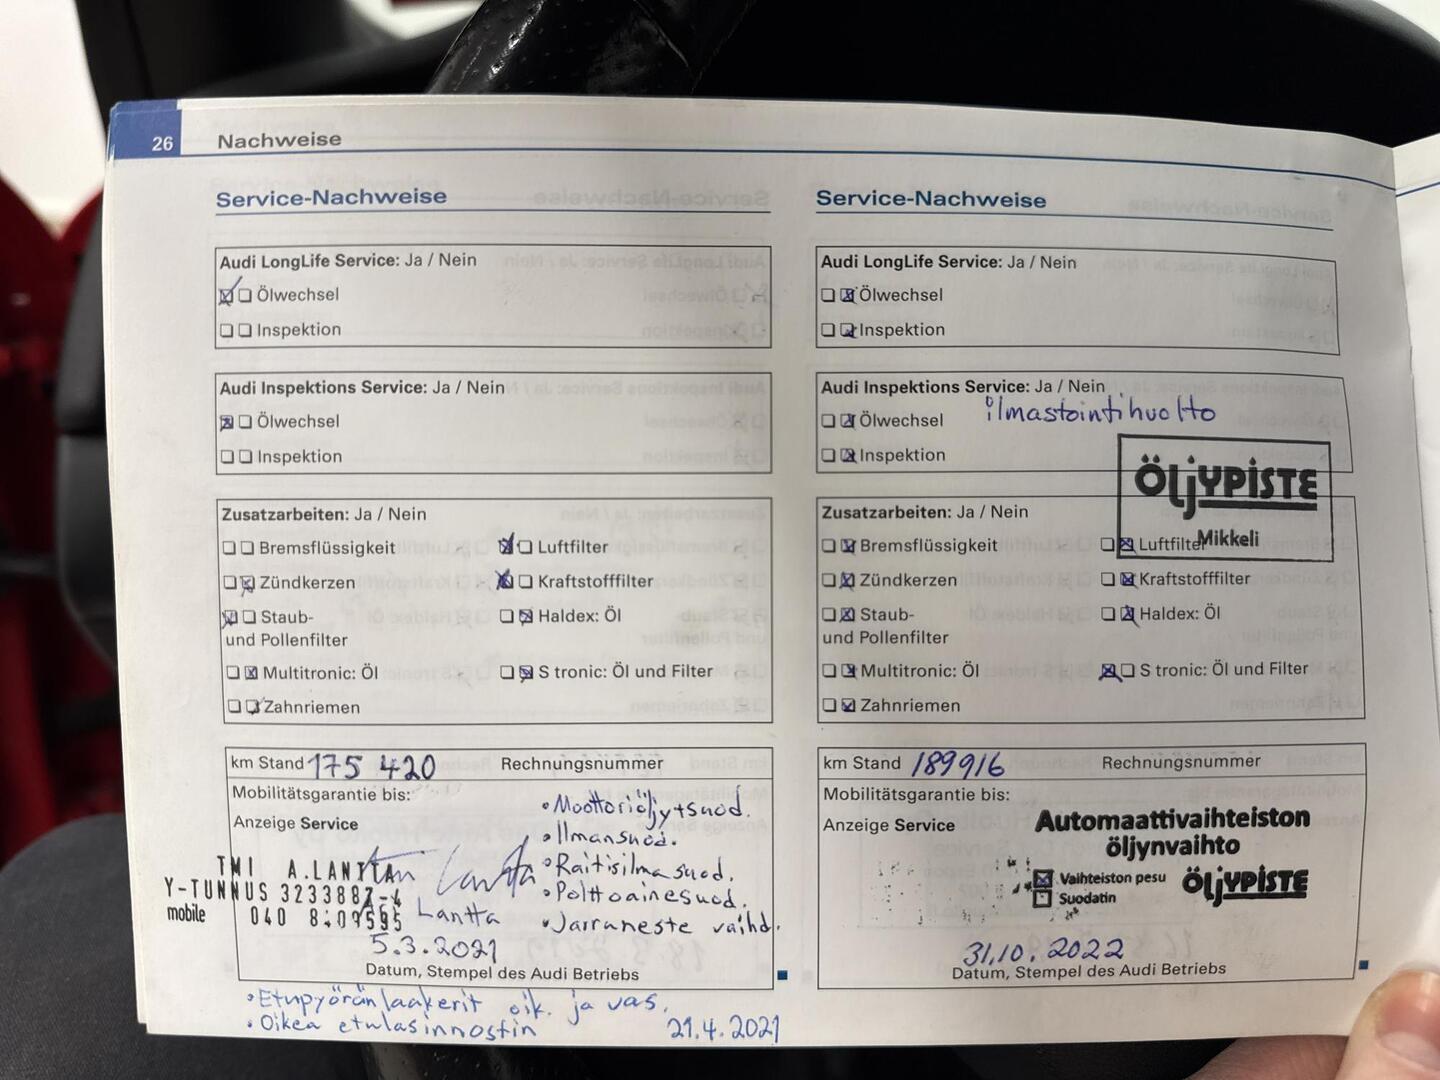 26 Nachweise
Service-Nachweise
Audi LongLife Service: Ja / Nein
Ölwechsel
Inspektion
Audi Inspektions Service: Ja / Nein
Ölwechsel
Inspektion
Zusatzarbeiten: Ja / Nein
Bremsflüssigkeit
Luftfilter
Zündkerzen
Kraftstofffilter
Staub-
und Pollenfilter
Haldex: Öl
Multitronic: Öl
S tronic: Öl und Filter
Zahnriemen
km Stand 175 420 Rechnungsnummer
Mobilitätsgarantie bis:
Anzeige Service
• Moottoriöljy+suod.
• Ilmansuod.
• Raitisilmasuod.
• Polttoainesuod.
• Jarruneste vaihd.
TMI A.LANTTA
Y-TUNNUS 3233887-4
mobile 040
Lantta
5.3.2021
Datum, Stempel des Audi Betriebs
• Etupyöränlaakerit oik. ja vas.
• Oikea etulasinnostin 21.4.2021
Service-Nachweise
Audi LongLife Service: Ja / Nein
Ölwechsel
Inspektion
Audi Inspektions Service: Ja / Nein
ilmastointihuolto
Ölwechsel
Inspektion
ÖljYPISTE
Mikkeli
Zusatzarbeiten: Ja / Nein
Bremsflüssigkeit
Luftfilter
Zündkerzen
Kraftstofffilter
Staub-
und Pollenfilter
Haldex: Öl
Multitronic: Öl
S tronic: Öl und Filter
Zahnriemen
km Stand 189916 Rechnungsnummer
Mobilitätsgarantie bis:
Anzeige Service
Automaattivaihteiston
öljynvaihto
Vaihteiston pesu
Suodatin
ÖljYPISTE
31.10.2022
Datum, Stempel des Audi Betriebs